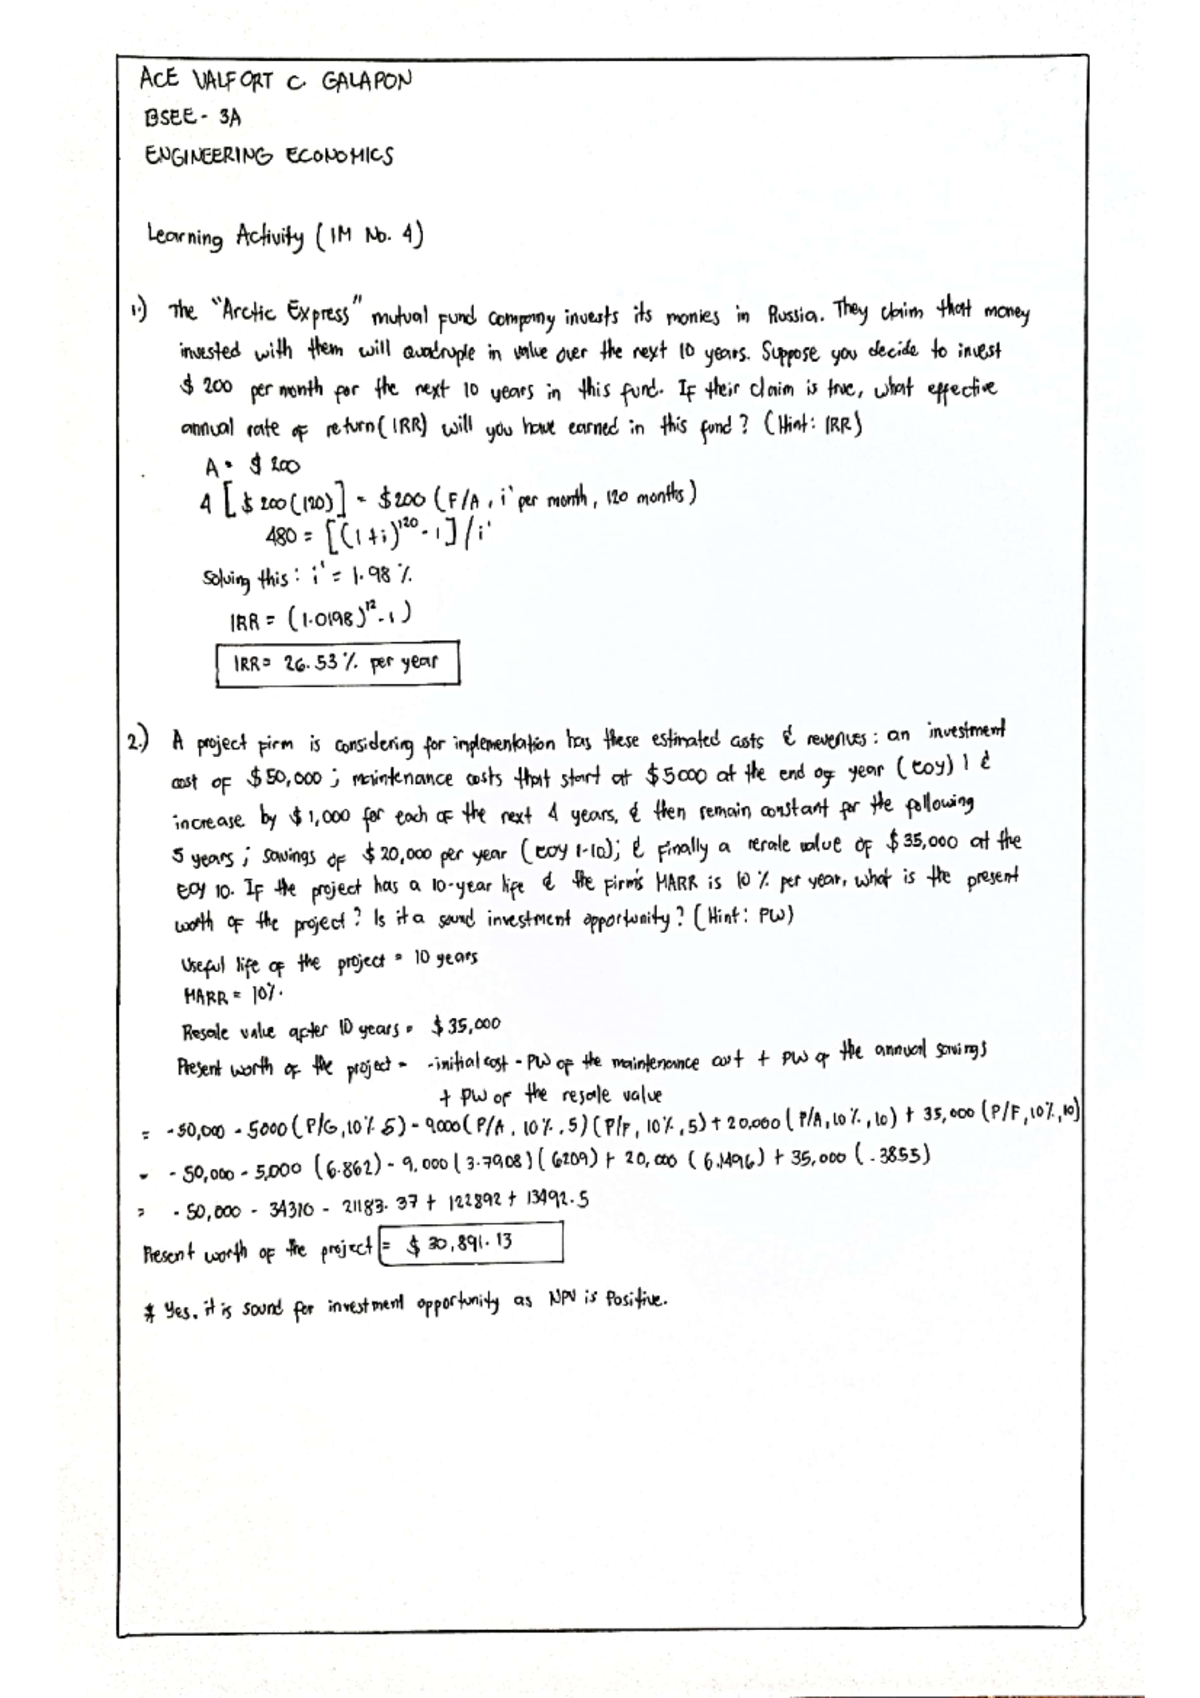 ACE VALFORT C. GALAPON
BSEE - 3A
ENGINEERING ECONOMICS
Learning Activity (IM No. 4)
1.) The "Arctic Express" mutual fund company invests its monies in Russia. They claim that money
invested with them will quadruple in value over the next 10 years. Suppose you decide to invest
$ 200 per month for the next 10 years in this fund. If their claim is true, what effective
annual rate of return (IRR) will you have earned in this fund? (Hint: IRR)
A = $ 200
4 [$ 200 (120)] = $200 (F/A, i' per month, 120 months)
480 = [(1+i)^120 - 1] / i'
Solving this: i' = 1.98 %
IRR = (1.0198)^12 - 1)
IRR = 26.53 % per year
2.) A project firm is considering for implementation has these estimated costs & revenues: an investment
cost of $50,000; maintenance costs that start at $5000 at the end of year (EOY) 1 &
increase by $1,000 for each of the next 4 years, & then remain constant for the following
5 years; savings of $20,000 per year (EOY 1-10); & finally a resale value of $35,000 at the
EOY 10. If the project has a 10-year life & the firm's MARR is 10 % per year, what is the present
worth of the project? Is it a sound investment opportunity? (Hint: PW)
Useful life of the project = 10 years
MARR = 10%.
Resale value after 10 years = $35,000
Present worth of the project = -initial cost - PW of the maintenance cost + PW of the annual savings
+ PW of the resale value
= -50,000 - 5000 (P/G, 10% 5) - 9000 (P/A, 10%, 5) (P/F, 10%, 5) + 20,000 (P/A, 10%, 10) + 35,000 (P/F, 10%, 10)
= -50,000 - 5,000 (6.862) - 9,000 (3.7908) (6209) + 20,000 (6.1496) + 35,000 (.3855)
= -50,000 - 34310 - 21183.37 + 122892 + 13492.5
Present worth of the project = $ 30,891.13
* Yes, it is sound for investment opportunity as NPV is Positive.